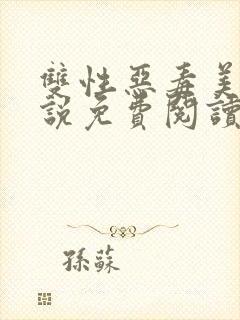 雙性惡毒美
說免費閱讀
孫蘇